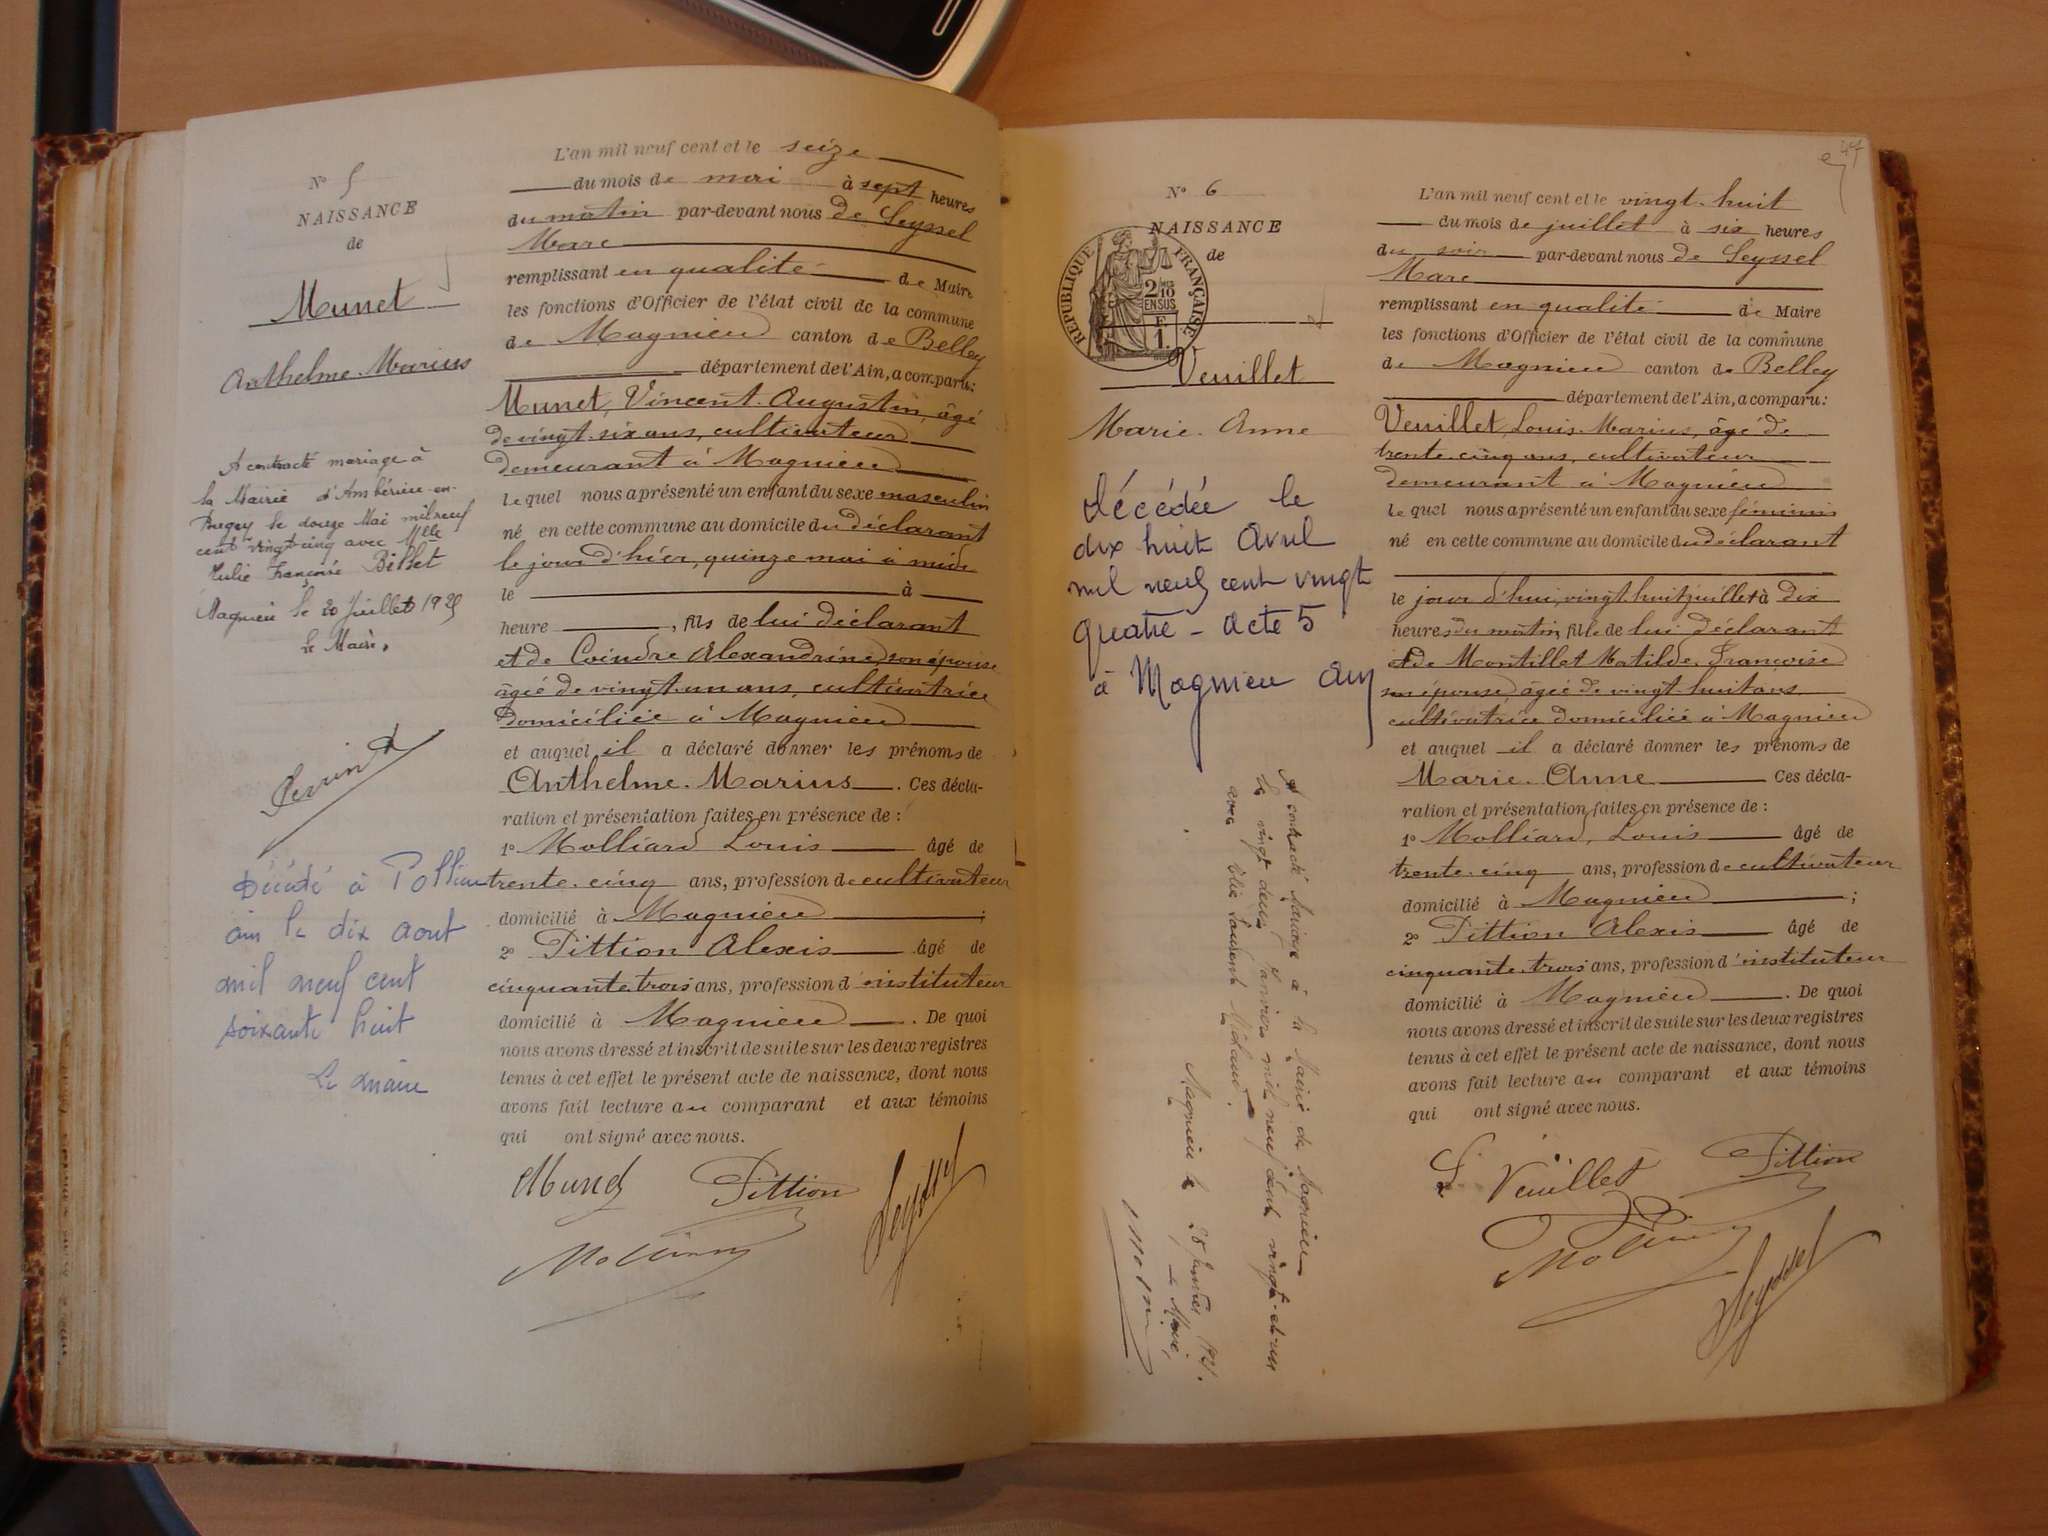 N° 5
NAISSANCE
de
Munet
Anthelme Marius
A contracté mariage à
la Mairie d'Ambérieu-en-
Bugey le douze Mai mil neuf
cent vingt cinq avec Mlle
Julie Françoise Billet
Magnieu le 20 Juillet 1925
Le Maire,
Décédé à Pollieu
ain le dix aout
mil neuf cent
soixante huit
Le maire
L'an mil neuf cent et le seize
du mois de mai à sept heures
du matin par-devant nous de Seyssel
Marc
remplissant en qualité de Maire
les fonctions d'Officier de l'état civil de la commune
de Magnieu canton de Belley
département de l'Ain, a comparu:
Munet, Vincent Augustin, âgé
de vingt-six ans, cultivateur
demeurant à Magnieu
lequel nous a présenté un enfant du sexe masculin
né en cette commune au domicile du déclarant
le jour d'hier, quinze mai à midi
le à
heure , fils de lui déclarant
et de Coindre Alexandrine, son épouse
âgée de vingt-un ans, cultivatrice
domiciliée à Magnieu
et auquel il a déclaré donner les prénoms de
Anthelme Marius . Ces décla-
ration et présentation faites en présence de :
1° Molliard Louis âgé de
trente-cinq ans, profession de cultivateur
domicilié à Magnieu ;
2° Pittion Alexis âgé de
cinquante trois ans, profession d'instituteur
domicilié à Magnieu . De quoi
nous avons dressé et inscrit de suite sur les deux registres
tenus à cet effet le présent acte de naissance, dont nous
avons fait lecture au comparant et aux témoins
qui ont signé avec nous.
Munet Pittion Seyssel
Molliard
47
N° 6
NAISSANCE
de
RÉPUBLIQUE FRANÇAISE
2/10
EN SUS
F
1.
Veuillet
Marie-Anne
décédée le
dix huit Avril
mil neuf cent vingt
quatre - acte 5
à Magnieu Ain
A contracté mariage à la Mairie de Magnieu
le vingt deux Janvier mil neuf cent vingt-et-un
avec
Magnieu le 1921.
le Maire,
L'an mil neuf cent et le vingt-huit
du mois de juillet à six heures
du soir par-devant nous de Seyssel
Marc
remplissant en qualité de Maire
les fonctions d'Officier de l'état civil de la commune
de Magnieu canton de Belley
département de l'Ain, a comparu:
Veuillet, Louis Marius, âgé de
trente-cinq ans, cultivateur
demeurant à Magnieu
lequel nous a présenté un enfant du sexe féminin
né en cette commune au domicile du déclarant
le jour d'hui, vingt huit juillet à dix
heures du matin, fille de lui déclarant
et de Montillet Matilde Françoise
son épouse âgée de vingt-huit ans
cultivatrice domiciliée à Magnieu
et auquel il a déclaré donner les prénoms de
Marie-Anne Ces décla-
ration et présentation faites en présence de :
1° Molliard, Louis âgé de
trente-cinq ans, profession de cultivateur
domicilié à Magnieu ;
2° Pittion Alexis âgé de
cinquante trois ans, profession d'instituteur
domicilié à Magnieu . De quoi
nous avons dressé et inscrit de suite sur les deux registres
tenus à cet effet le présent acte de naissance, dont nous
avons fait lecture au comparant et aux témoins
qui ont signé avec nous.
L. Veuillet Pittion
Molliard Seyssel